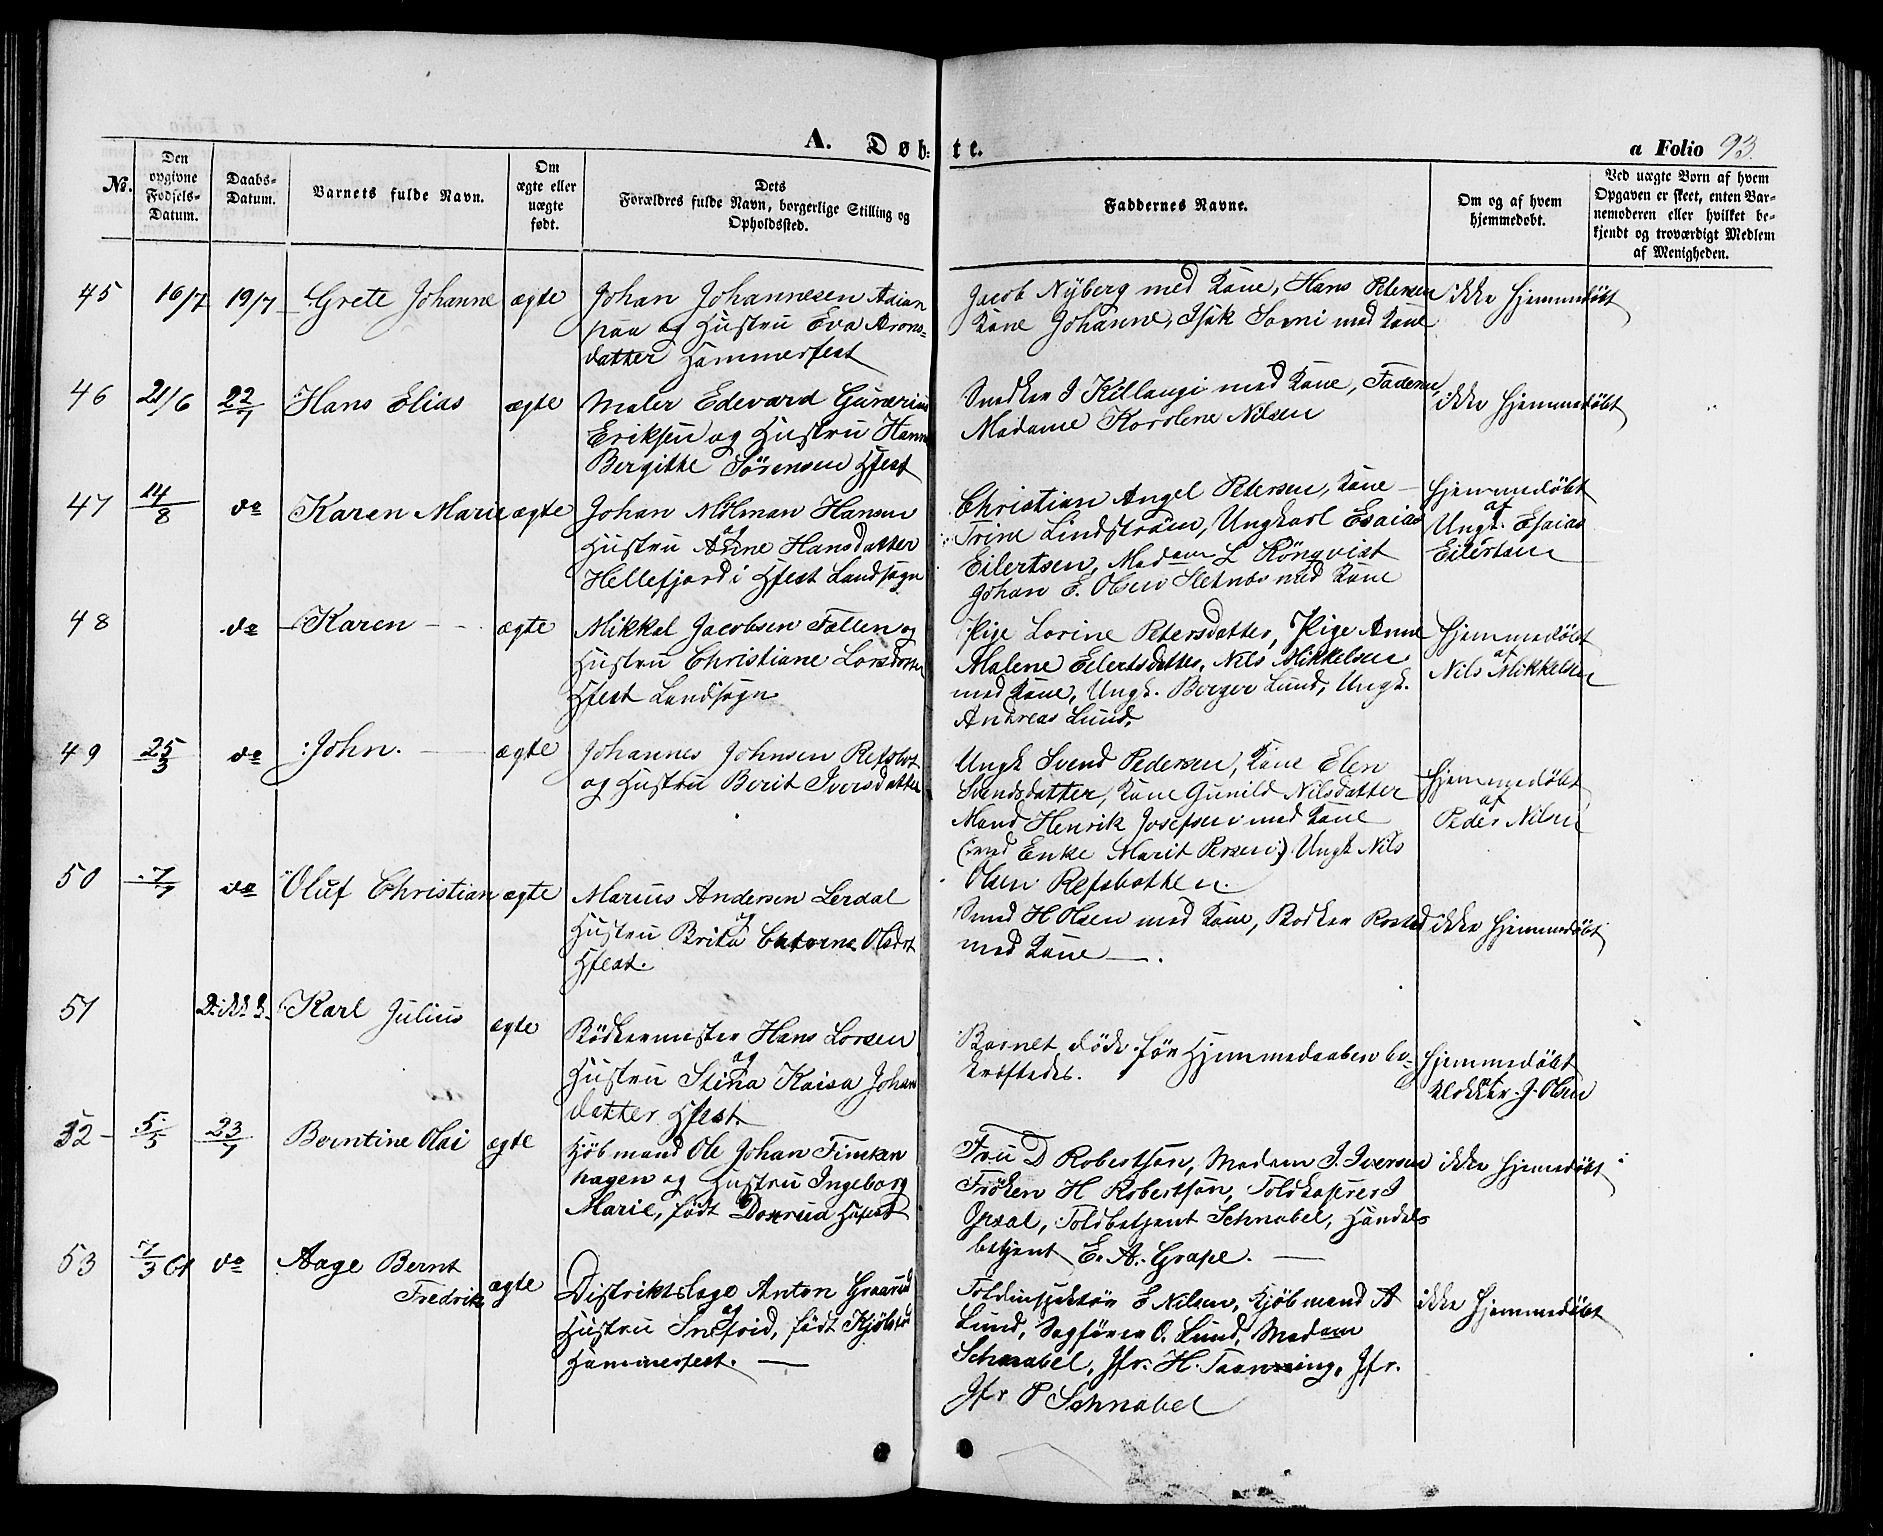 A. Døb-te.
a Folio 93.
No.
Den opgivne Fødsels-Datum.
Daabs-Datum.
Barnets fulde Navn.
Om ægte eller uægte født.
Dets Forældres fulde Navn, borgerlige Stilling og Opholdssted.
Faddernes Navne.
Om og af hvem hjemmedøbt.
Ved uægte Børn af hvem Opgaven er skeet, enten Barnemoderen eller hvilket bekjendt og troværdigt Medlem af Menigheden.
45 16/7 19/7 Grete Johanne ægte
Johan Johannesen
paa og Hustru Eva Arons-
datter Hammerfest
Jacob Nyberg med Kone, Hans Petersen
Kone Johanne, Isak med Kone
ikke hjemmedøbt
46 21/6 22/7 Hans Elias ægte
Maler Edevard Gunerius
Eriksen og Hustru Hanna
Bergitte Sørensen Hfest
Snedker I Killangi med Kone, Faderen,
Madame Karolene Nilsen
ikke hjemmedøbt
47 14/8 do Karen Marie ægte
Johan Molman Hansen
og
Hustru Anne Hansdatter
Hellefjord i Hfest Landsogn
Christian Angel Petersen, Kone
Trine Lindstrøm, Ungkarl Esaias
Eilertsen, Madam L Rönqvist
Johan E. Olsen med Kone
Hjemmedøbt
af
Ungk. Esaias
Eilertsen
48 do Karen - ægte
Mikkel Jacobsen Fallen og
Hustru Christiane Larsdatter
Hfest Landsogn
Pige Lorine Petersdatter, Pige Anne
Malene Eilertsdatter, Nils Mikkelsen
med Kone, Ungk. Berger Lund, Ungk.
Andreas Lund.
Hjemmedøbt
af
Nils Mikkelsen
49 25/3 do John. ægte
Johannes Johnsen Refsbot
og Hustru Berit Iversdatter
Ungk Svend Pedersen, Kone Elen
Svendsdatter, Kone Gunild Nilsdatter
Mand Henrik Josefsen med Kone
Enke Marit Persen) Ungk Nils
Olsen Refsbotten.
Hjemmedøbt
af
Peder Nilsen
50 7/7 do Oluf Christian ægte
Marius Andersen Lerdal
og
Hustru Brita Catrine Olsdt
Hfest.
Smed H Olsen med Kone, Bødker Rosted
med Kone.
ikke hjemmedøbt
51 Karl Julius ægte
Bødkermester Hans Larsen
og
Hustru Stina Kaisa Johan
datter Hfest.
Barnet døde før Hjemmedaaben be-
kræftedes.
Hjemmedøbt
af
Klokker J. Olsen
52 5/5 23/7 Berntine Olai ægte
Kjøbmand Ole Johan Fincken
hagen og Hustru Ingeborg
Marie, født Donrud Hfest
Fru D Robertson, Madam I. Iversen
Frøken H Robertson, Toldkasserer I
Toldbetjent Schnabel, Handels
betjent E. A. Grape.
ikke hjemmedøbt
53 7/3 61 do Aage Bernt
Fredrik ægte
Distriktslæge Anton Graarud
og
Hustru Snefrid, født Kjølstad
Hammerfest.
Toldinspektør E Nilsen, Kjøbmand A
Lund, Sagfører O. Lund, Madam
Schnabel, Jfr. H. Taanning, Jfr.
Jfr P Schnabel
ikke hjemmedøbt